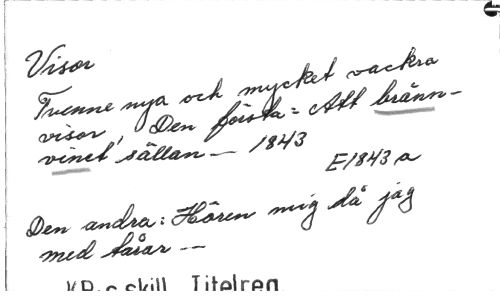 Visor
Tvenne nya och mycket vackra
visor, Den första: Att bränn-
vinet sällan — 1843
E1843 a
Den andra: Hören mig då jag
med tårar --
KB:s skill. Titelreg.